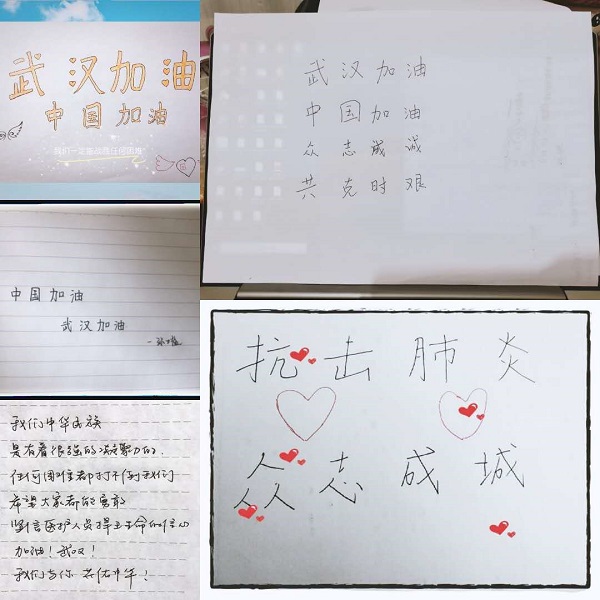 武汉加油
中国加油
我们一定能战胜任何困难
武汉加油
中国加油
众志成诚
共克时艰
中国加油
武汉加油
我们中华民族
是有着很强的凝聚力的，
任何困难都打不倒我们
希望大家都能勇敢
坚信医护人员捍卫生命的信心
加油！武汉！
我们与你 共佑中华！
抗击肺炎
众志成城